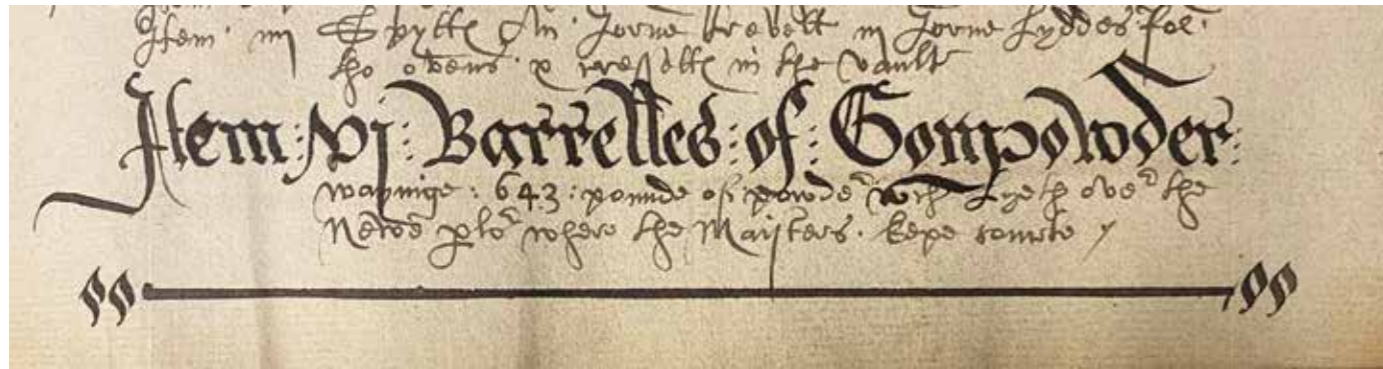 Item iiij Spyttes An Iorne trevett iij Iorne lyddes for
the ovens x tressells in the vault
Item : vj : Barrelles : of : Gompowder :
wayinge : 643 : pounde of powder wch lyeth over the
Newe plor where the Maisters kepe courte